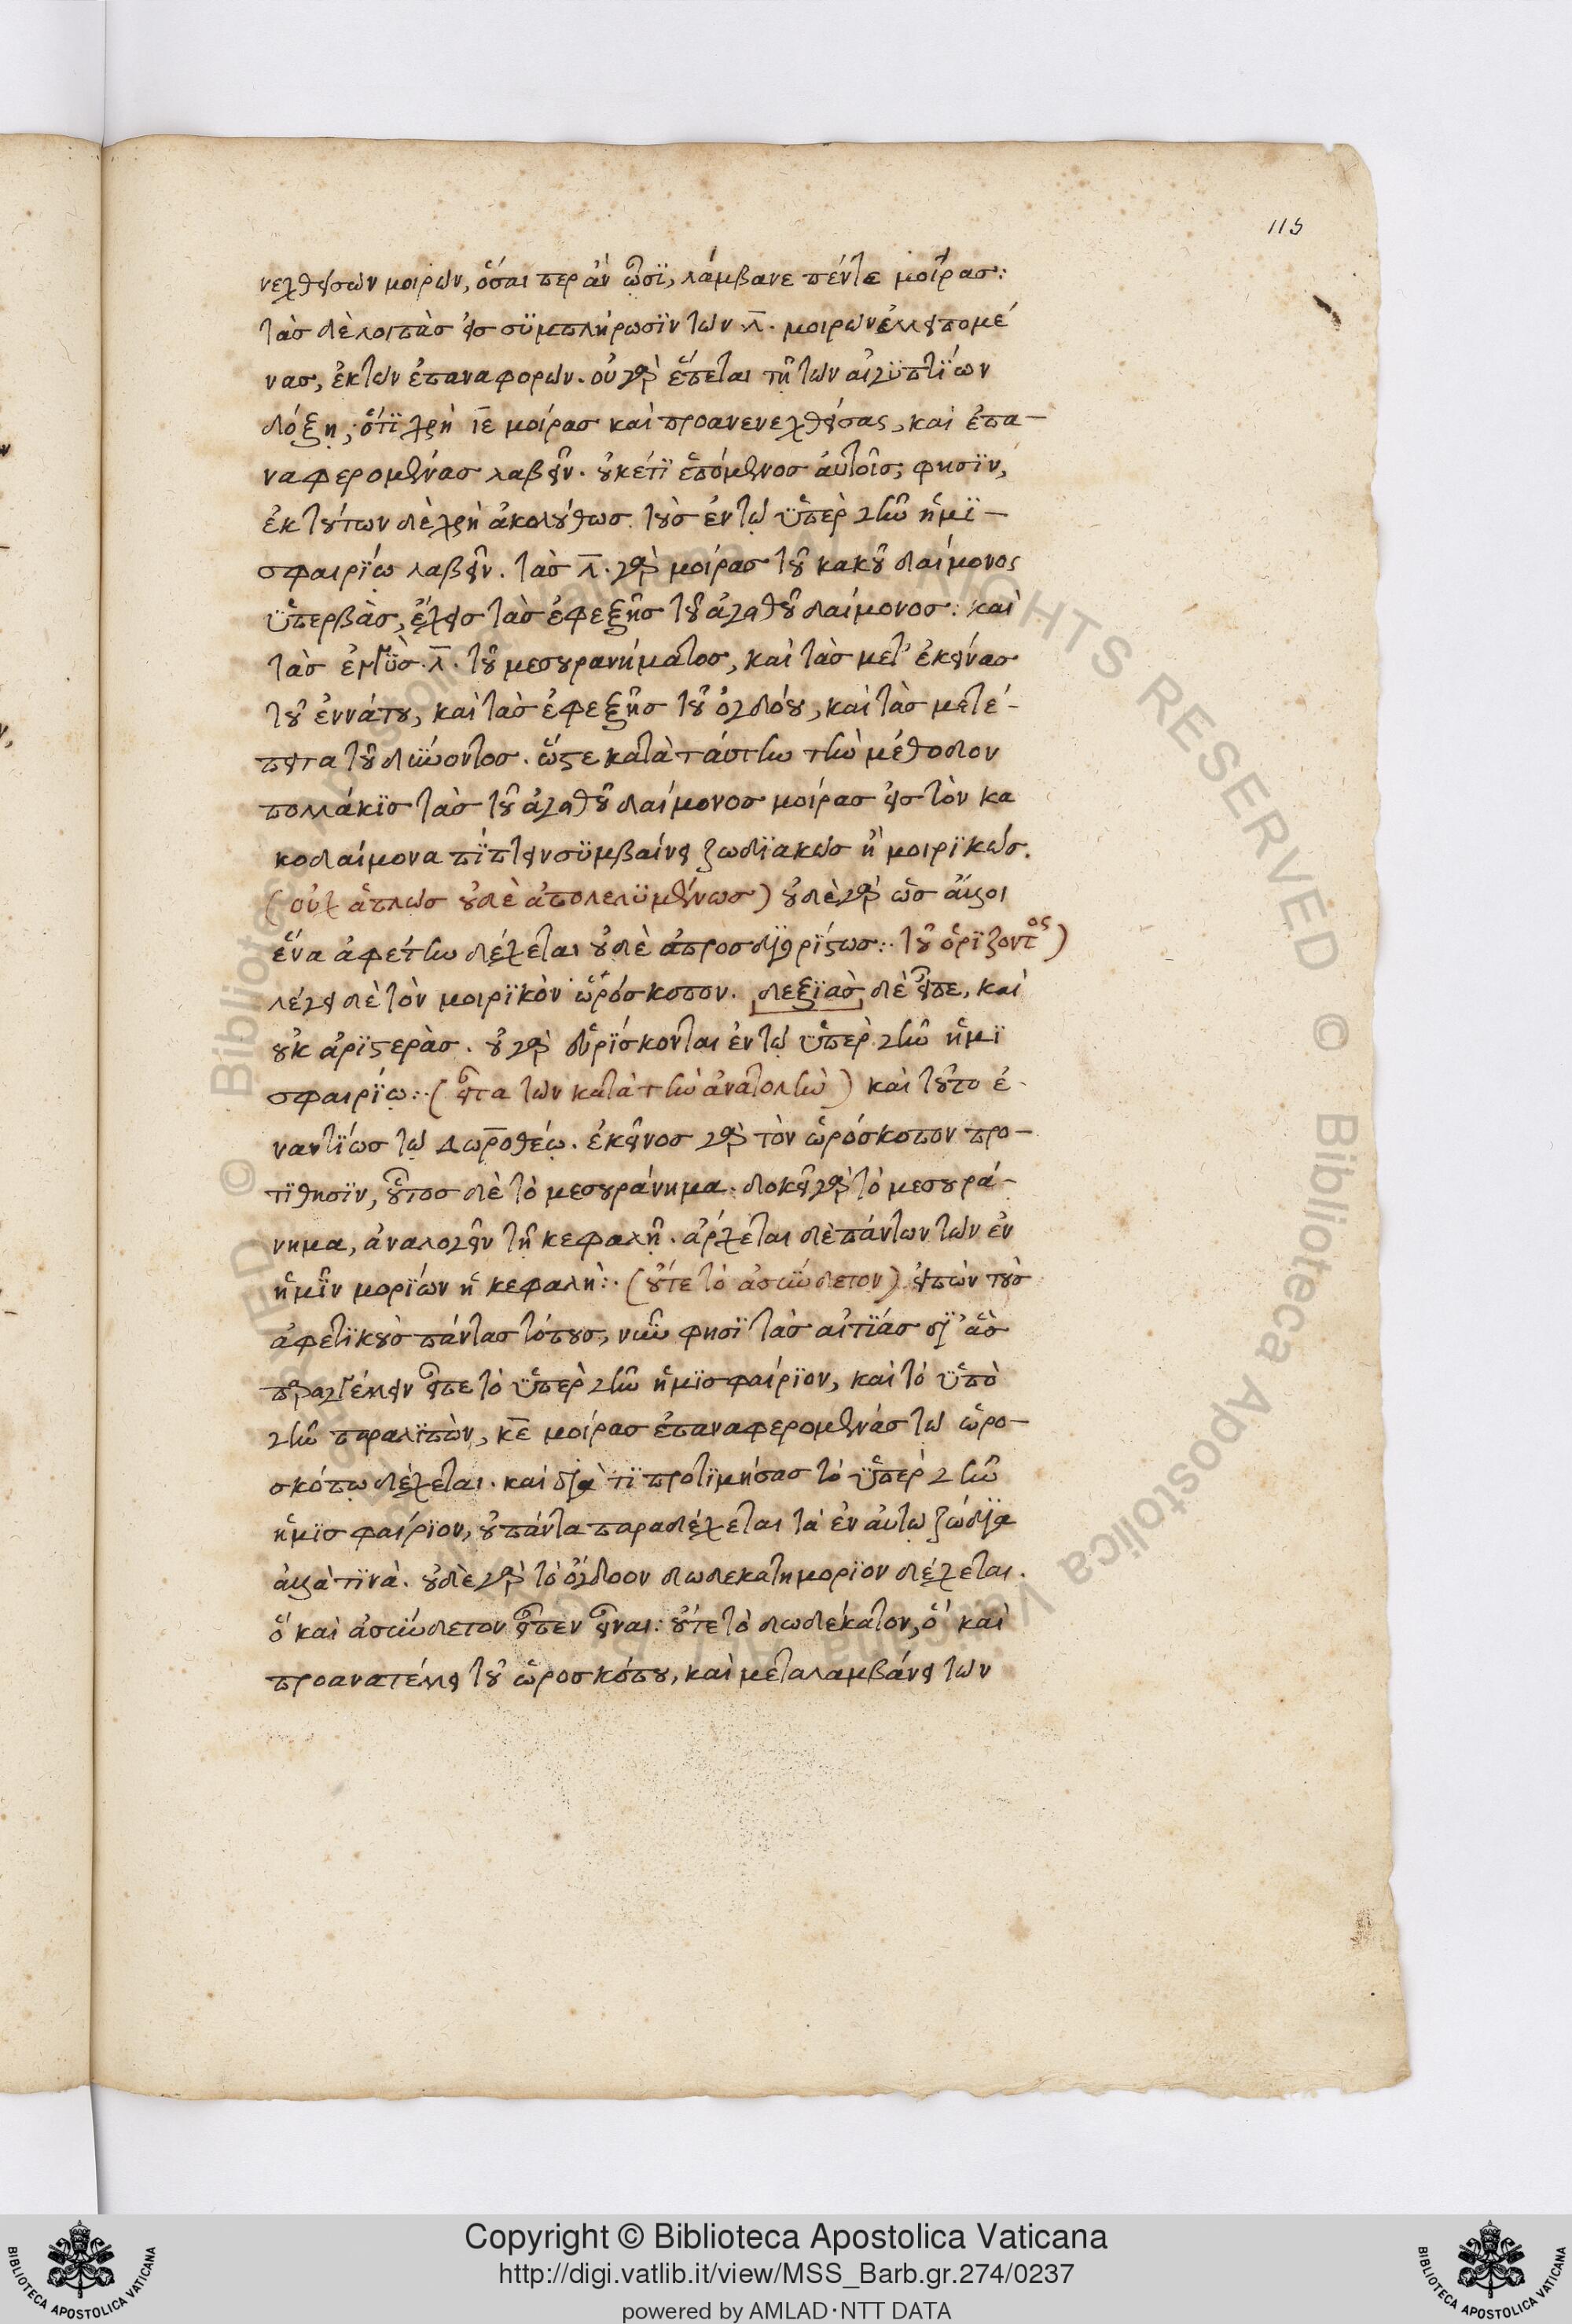 115
νεχθεισῶν μοιρῶν, ὅσαι περ ἂν ὦσϊ, λάμβανε πέντε μοίρας:
τὰς δὲ λοιπὰς εἰς συμπλήρωσϊν τῶν .λ̅. μοιρῶν ἐλλειπομέ
νας, ἐκ τῶν ἐπαναφορῶν. οὐ γὰρ ἕπεται τῇ τῶν αἰγϋπτΐων
δόξῃ, ὅτϊ χρὴ ι̅ε̅ μοίρας καὶ προανενεχθείσας, καὶ ἐπα-
ναφερομένας λαβεῖν. οὐκέτϊ ἑπόμενος αὐτοῖς, φησϊν,
ἐκ τούτων δὲ χρὴ ἀκολούθως τοὺς ἐν τῷ ὑπὲρ γῆν ἡμϊ-
σφαιρΐῳ λαβεῖν. τὰς .λ̅. γὰρ μοίρας τοῦ κακοῦ δαίμονος
ὑπερβὰς, ἔχεις τὰς ἐφεξῆς τοῦ ἀγαθοῦ δαίμονος: καὶ
τὰς ἐντὸς .λ̅. τοῦ μεσουρανήματος, καὶ τὰς μετ' ἐκείνας
τοῦ ἐννάτου, καὶ τὰς ἐφεξῆς τοῦ ὀγδόου, καὶ τὰς μετέ-
πειτα τοῦ δύνοντος. ὥστε κατὰ ταύτην τὴν μέθοδον
πολλάκϊς τὰς τοῦ ἀγαθοῦ δαίμονος μοίρας εἰς τὸν κα
κοδαίμονα πΐπτειν συμβαίνει ζωδϊακῶς ἢ μοιρϊκῶς.
(οὐχ ἁπλῶς οὐδὲ ἀπολελϋμένως) οὐδὲ γὰρ ὡς ἄλλοι
ἕνα ἀφέτην δέχεται οὐδὲ ἀπροσδϊορΐστως:· τοῦ ὁρΐζοντος)
λέγει δὲ τὸν μοιρϊκὸν ὡρόσκοπον. δεξϊὰς δὲ εἶπε, καὶ
οὐκ ἀρϊστερὰς. οὐ γὰρ εὑρΐσκονται ἐν τῷ ὑπὲρ γῆν ἡμϊ
σφαιρΐῳ:· (εἶτα τῶν κατὰ τὴν ἀνατολὴν) καὶ τοῦτο ἐ-
ναντΐως τῷ Δωροθέῳ. ἐκεῖνος γὰρ τὸν ὡρόσκοπον προ-
τϊθησϊν, οὗτος δὲ τὸ μεσουράνημα. δοκεῖ γὰρ τὸ μεσουρά-
νημα, ἀναλογεῖν τῇ κεφαλῇ. ἄρχεται δὲ πάντων τῶν ἐν
ἡμῖν μορΐων ἡ κεφαλὴ:· (οὔτε τὸ ἀσύνδετον) εἰπὼν τοὺς
ἀφετϊκοὺς πάντας τόπους, νῦν φησϊ τὰς αἰτΐας δϊ' ἃς
παραγγέλλειν εἶπε τὸ ὑπὲρ γῆν ἡμϊσφαίρϊον, καὶ τὸ ὑπὸ
γῆν παραλϊπὼν, κ̅ε̅ μοίρας ἐπαναφερομένας τῷ ὡρο-
σκόπῳ δέχεται. καὶ δϊὰ τΐ προτϊμήσας τὸ ὑπὲρ γῆν
ἡμϊσφαίρϊον, οὐ πάντα παραδέχεται τὰ ἐν αὐτῷ ζώδϊα
ἀλλὰ τϊνὰ. οὐδὲ γὰρ τὸ ὄγδοον δωδεκατημορϊον δέχεται.
ὃ καὶ ἀσύνδετον εἶπεν εἶναι: οὔτε τὸ δωδέκατον, ὃ καὶ
προανατέλλει τοῦ ὡροσκόπου, καὶ μεταλαμβάνει τῶν
© Biblioteca Apostolica Vaticana ALL RIGHTS RESERVED © Biblioteca Apostolica Vaticana ALL RIGHTS RESERVED
BIBLIOTECA APOSTOLICA VATICANA
Copyright © Biblioteca Apostolica Vaticana
http://digi.vatlib.it/view/MSS_Barb.gr.274/0237
powered by AMLAD·NTT DATA
BIBLIOTECA APOSTOLICA VATICANA